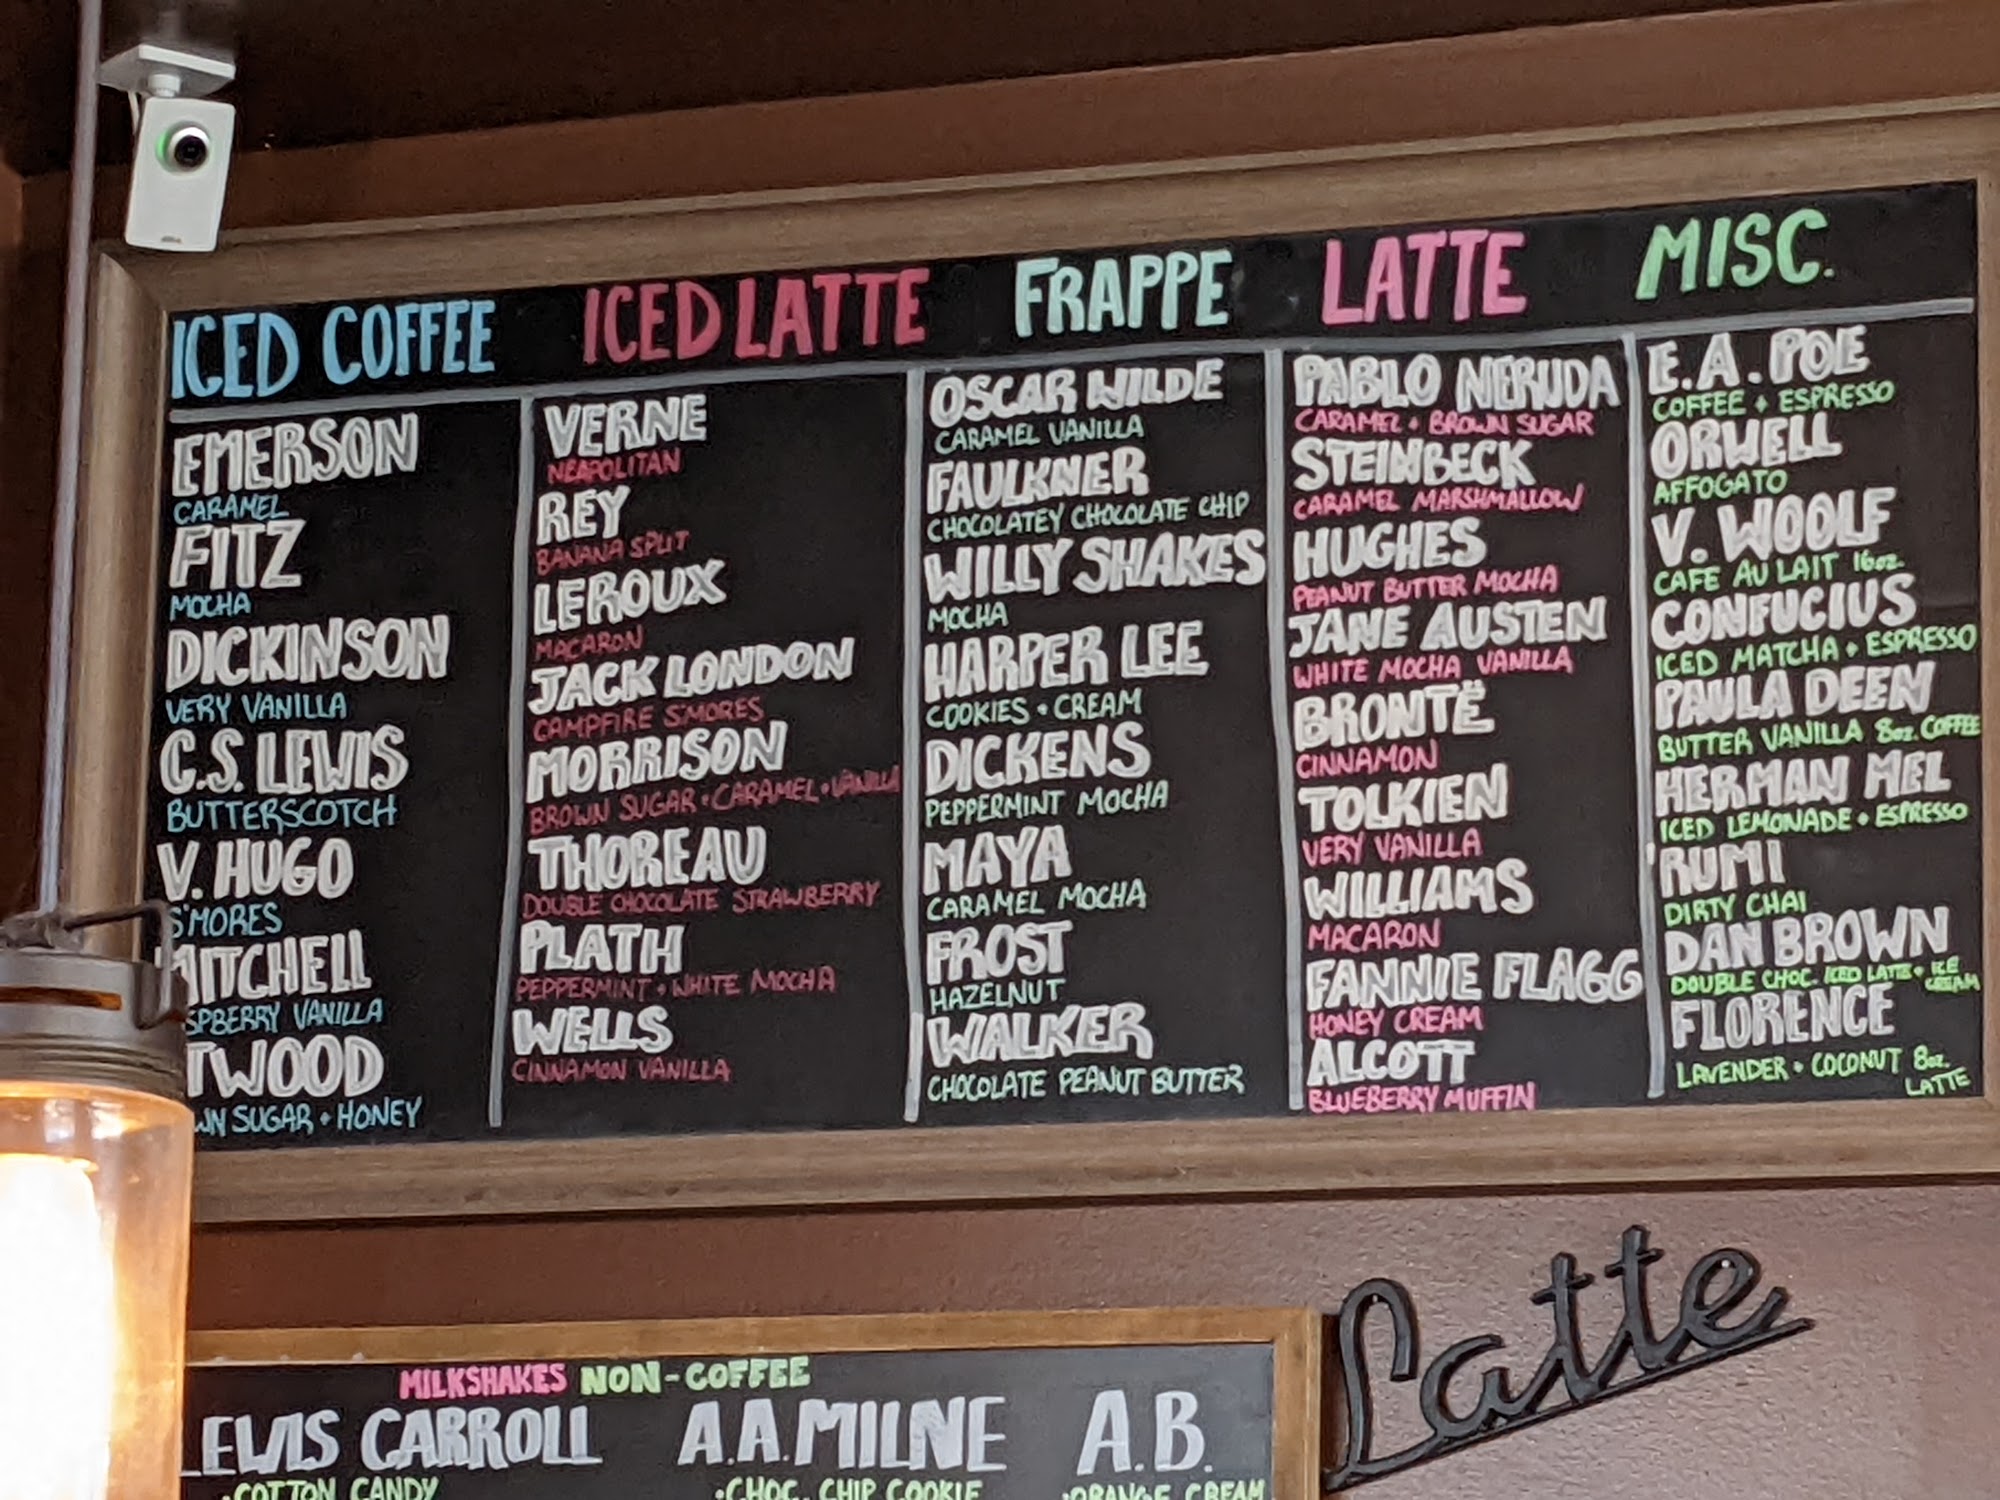 ICED COFFEE
EMERSON
CARAMEL
FITZ
MOCHA
DICKINSON
VERY VANILLA
C.S. LEWIS
BUTTERSCOTCH
V. HUGO
S'MORES
MITCHELL
SPBERRY VANILLA
TWOOD
WN SUGAR + HONEY
ICED LATTE
VERNE
NEAPOLITAN
REY
BANANA SPLIT
LEROUX
MACARON
JACK LONDON
CAMPFIRE S'MORES
MORRISON
BROWN SUGAR + CARAMEL + VANILLA
THOREAU
DOUBLE CHOCOLATE STRAWBERRY
PLATH
PEPPERMINT + WHITE MOCHA
WELLS
CINNAMON VANILLA
FRAPPE
OSCAR WILDE
CARAMEL VANILLA
FAULKNER
CHOCOLATEY CHOCOLATE CHIP
WILLY SHAKES
MOCHA
HARPER LEE
COOKIES + CREAM
DICKENS
PEPPERMINT MOCHA
MAYA
CARAMEL MOCHA
FROST
HAZELNUT
WALKER
CHOCOLATE PEANUT BUTTER
LATTE
PABLO NERUDA
CARAMEL + BROWN SUGAR
STEINBECK
CARAMEL MARSHMALLOW
HUGHES
PEANUT BUTTER MOCHA
JANE AUSTEN
WHITE MOCHA VANILLA
BRONTË
CINNAMON
TOLKIEN
VERY VANILLA
WILLIAMS
MACARON
FANNIE FLAGG
HONEY CREAM
ALCOTT
BLUEBERRY MUFFIN
MISC.
E.A. POE
COFFEE + ESPRESSO
ORWELL
AFFOGATO
V. WOOLF
CAFE AU LAIT 16oz.
CONFUCIUS
ICED MATCHA + ESPRESSO
PAULA DEEN
BUTTER VANILLA 8oz. COFFEE
HERMAN MEL
ICED LEMONADE + ESPRESSO
RUMI
DIRTY CHAI
DAN BROWN
DOUBLE CHOC. ICED LATTE + ICE
CREAM
FLORENCE
LAVENDER + COCONUT 8oz.
LATTE
Latte
MILKSHAKES NON-COFFEE
LEWIS CARROLL
•COTTON CANDY
A.A. MILNE
•CHOC. CHIP COOKIE
A.B.
•ORANGE CREAM